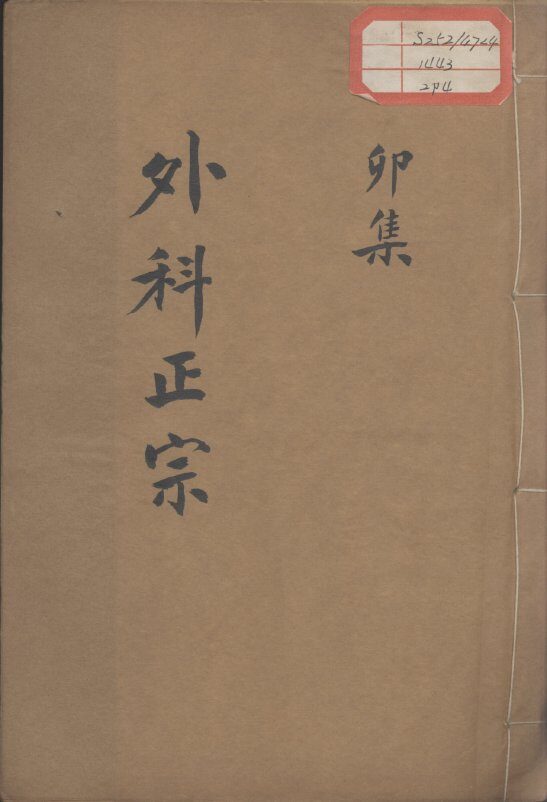 S252/4724
1443
2P4
卯集
外科正宗